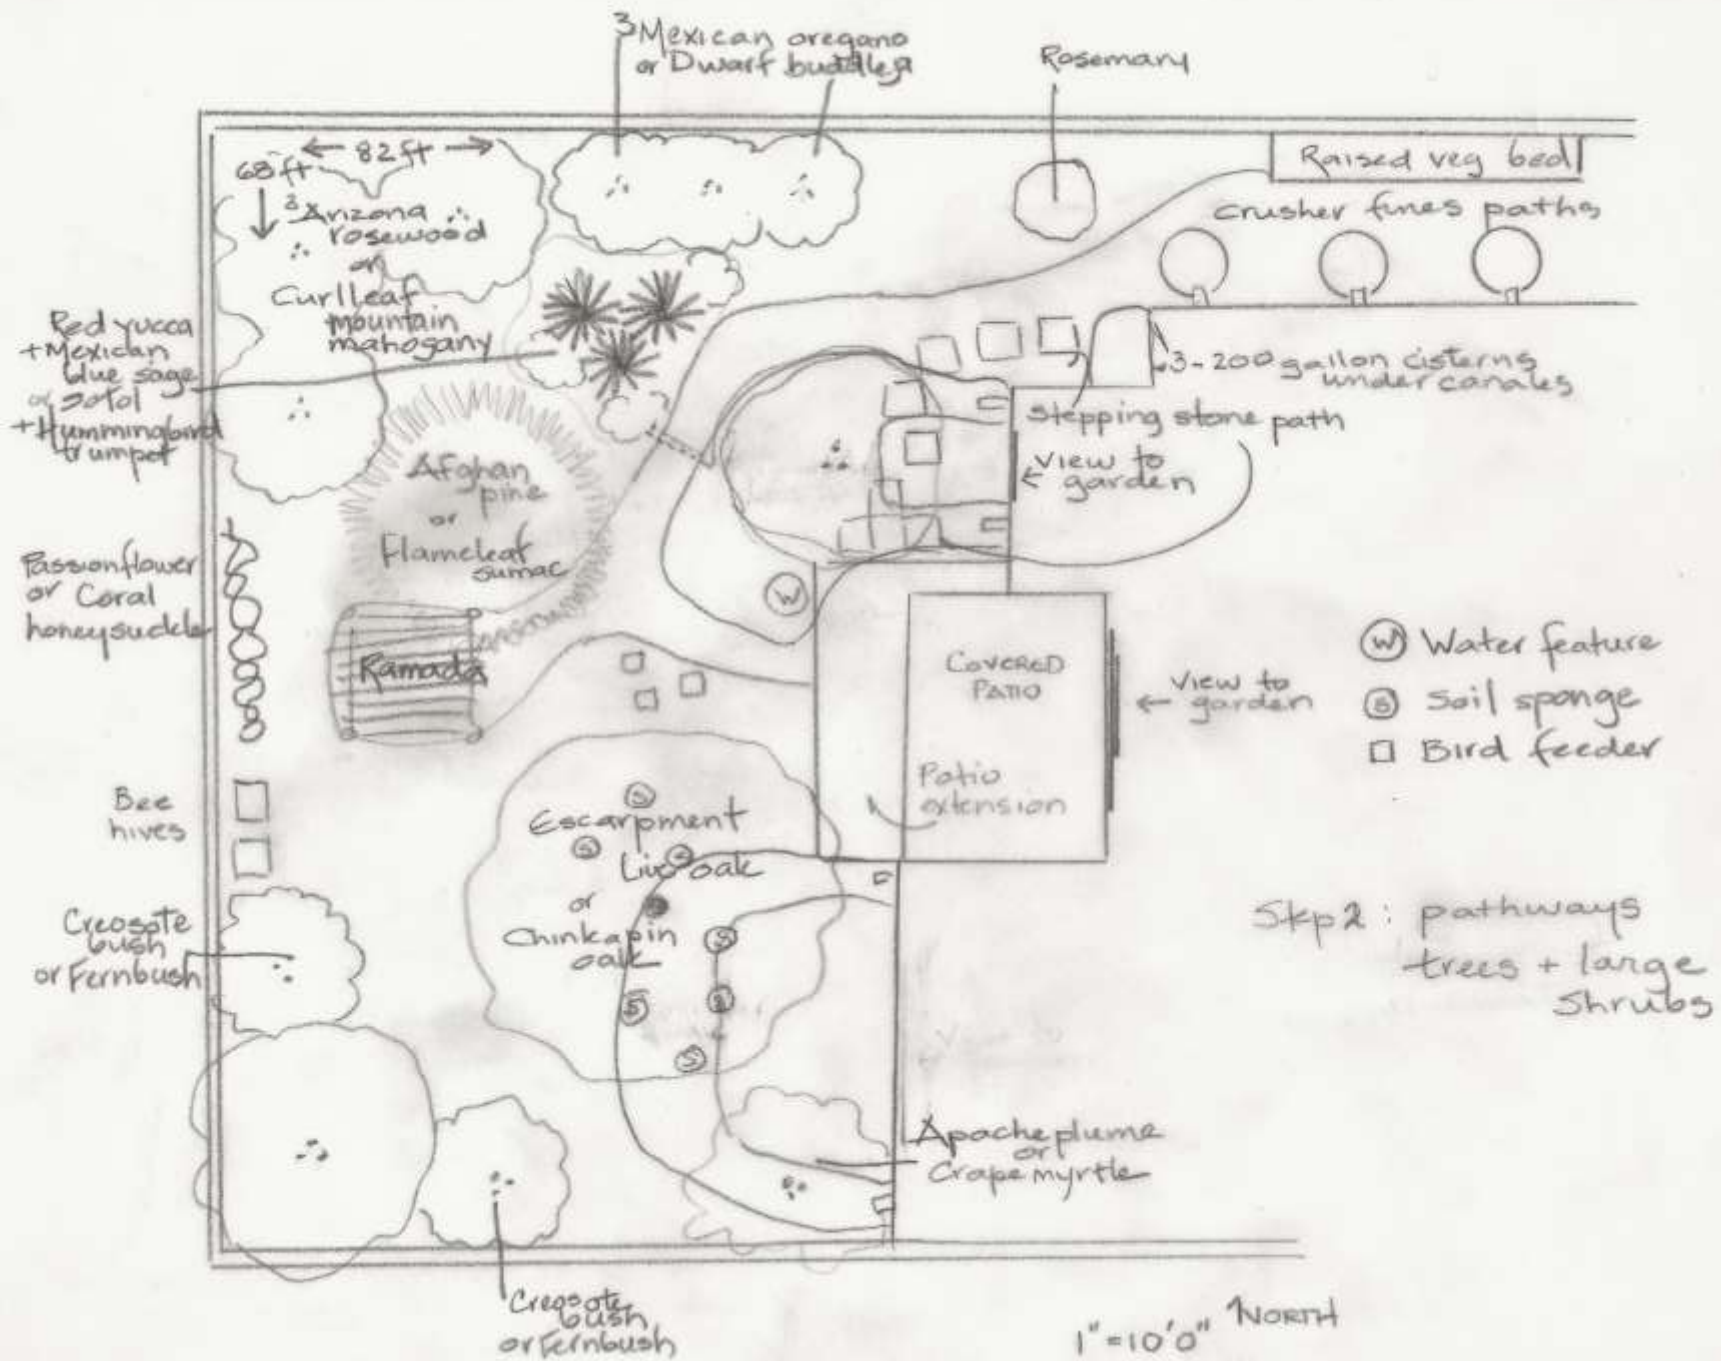 3 Mexican oregano
or Dwarf buddleja
Rosemary
Raised veg bed
crusher fines paths
← 82 ft →
68 ft
3 Arizona
rosewood
or
Curl leaf
mountain
mahogany
Red yucca
+ Mexican
blue sage
or sotol
+ Hummingbird
trumpet
3-200 gallon cisterns
under canales
Stepping stone path
← View to
garden
Afghan
pine
or
Flameleaf
sumac
Passionflower
or Coral
honeysuckle
W
Ramada
COVERED
PATIO
Patio
extension
← View to
garden
W Water feature
S Soil sponge
Bird feeder
Bee
hives
S
Escarpment
S
S
Live oak
or
Chinkapin
oak
S
S
S
S
Creosote
bush
or Fernbush
Step 2: pathways
trees + large
shrubs
Apache plume
or
Crape myrtle
Creosote
bush
or Fernbush
1" = 10'0"
NORTH